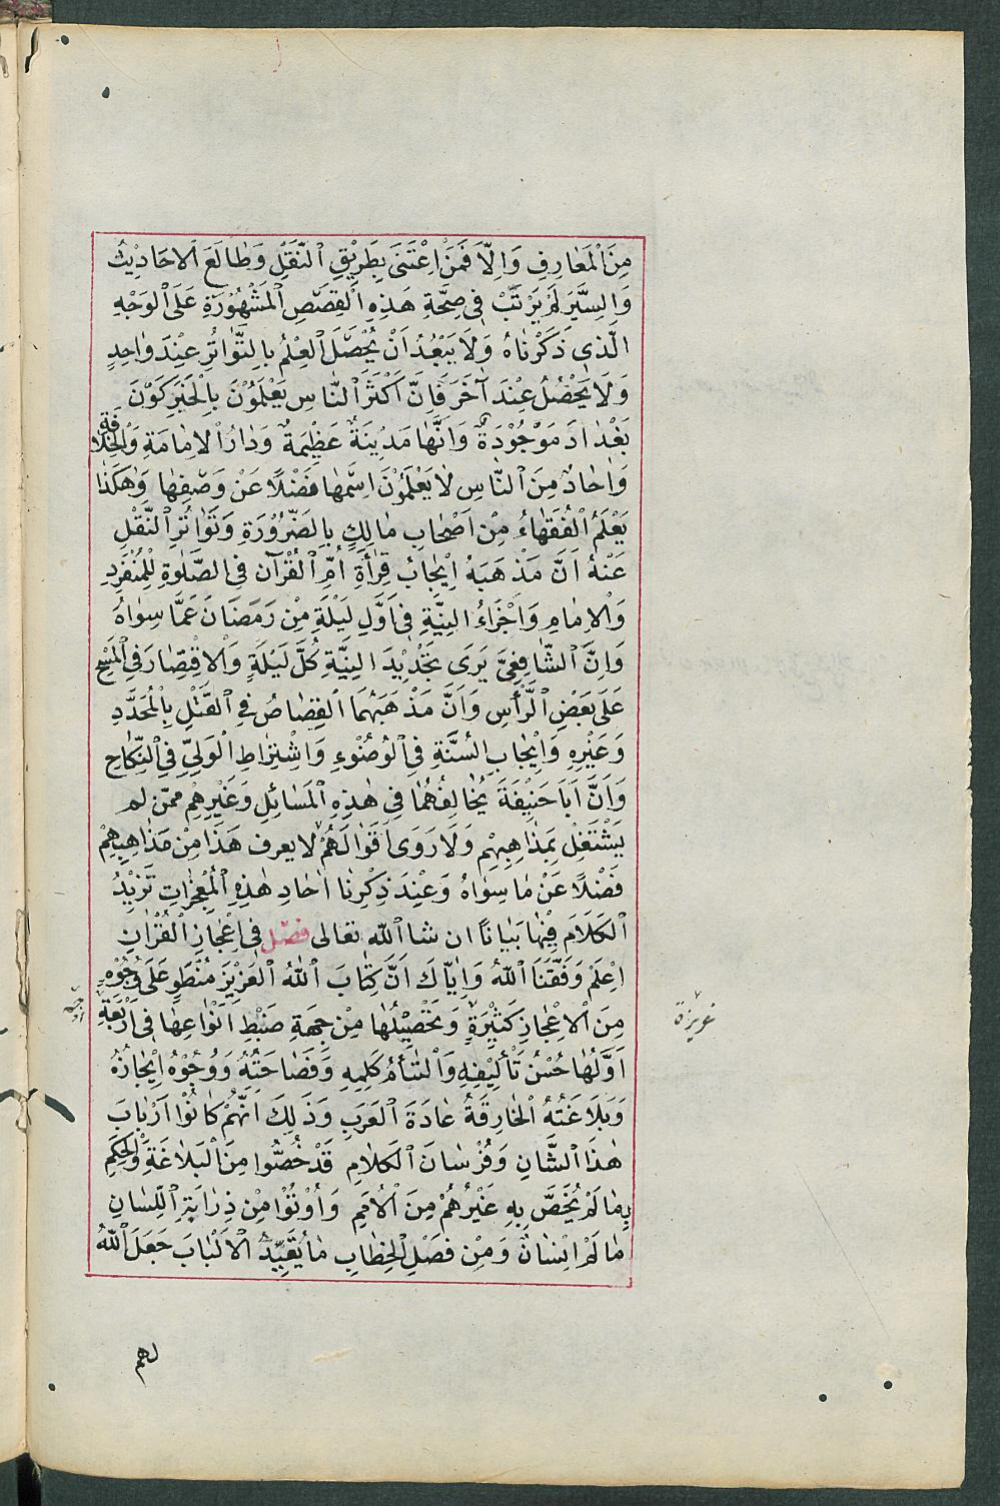 مِنَ الْمَعَارِفِ وَاِلَّا فَمَنِ اعْتَنَى بِطَرِيْقِ النَّقْلِ وَطَالَعَ الْاَحَادِيْثَ
وَالسِّيَرَ لَمْ يَرْتَبْ فِى صِحَّةِ هَذِهِ الْقِصَصِ الْمَشْهُوْرَةِ عَلَى الْوَجْهِ
الَّذِى ذَكَرْنَاهُ وَلَا يَبْعُدُ اَنْ يُحَصَّلَ الْعِلْمُ بِالتَّوَاتُرِ عِنْدَ وَاحِدٍ
وَلَا يَحْصُلُ عِنْدَ آخَرَ فَاِنَّ اَكْثَرَ النَّاسِ يَعْلَمُوْنَ بِالْخَبَرِ كَوْنَ
بَغْدَادَ مَوْجُوْدَةً وَاَنَّهَا مَدِيْنَةٌ عَظِيْمَةٌ وَدَارُ الْاِمَامَةِ وَالْخِلَافَةِ
وَاٰحَادٌ مِنَ النَّاسِ لَا يَعْلَمُوْنَ اسْمَهَا فَضْلًا عَنْ وَصْفِهَا وَهَكَذَا
يَعْلَمُ الْفُقَهَاءُ مِنْ اَصْحَابِ مَالِكٍ بِالضَّرُوْرَةِ وَتَوَاتُرِ النَّقْلِ
عَنْهُ اَنَّ مَذْهَبَهُ اِيْجَابُ قِرَأَةِ اُمِّ الْقُرْآنِ فِى الصَّلٰوةِ لِلْمُنْفَرِدِ
وَالْاِمَامِ وَاِجْزَاءُ النِّيَّةِ فِى اَوَّلِ لَيْلَةٍ مِنْ رَمَضَانَ عَمَّا سِوَاهُ
وَاِنَّ الشَّافِعِيَّ يَرَى تَجْدِيْدَ النِّيَّةِ كُلَّ لَيْلَةٍ وَالْاِقْتِصَارَ فِى الْمَسْحِ
عَلَى بَعْضِ الرَّأْسِ وَاَنَّ مَذْهَبَهُمَا الْقِصَاصُ فِى الْقَتْلِ بِالْمُحَدَّدِ
وَغَيْرِهِ وَاِيْجَابِ السُّنَّةِ فِى الْوُضُوْءِ وَاشْتِرَاطِ الْوَلِيِّ فِى النِّكَاحِ
وَاَنَّ اَبَا حَنِيْفَةَ يُخَالِفُهُمَا فِى هٰذِهِ الْمَسَائِلِ وَغَيْرِهِمْ ممّن لم
يَشْتَغِلْ بِمَذَاهِبِهِمْ وَلَا رَوَى اَقْوَالَهُمْ لا يعرف هَذَا مِنْ مَذَاهِبِهِمْ
فَضْلًا عَنْ مَا سِوَاهُ وَعِنْدَ ذِكْرِنَا اٰحَادِ هٰذِهِ الْمُعْجِزَاتِ نَزِيْدُ
الْكَلَامَ فِيْهَا بَيَانًا ان شا الله تعالى فصل فى اِعْجَازِ الْقُرْاٰنِ
اِعْلَمْ وَفَّقَنَا اللهُ وَاِيَّاكَ اَنَّ كِتَابَ اللهُ الْعَزِيْزَ مُنْطَوٍ عَلَى وُجُوْهٍ
مِنَ الْاِعْجَازِ كَثِيْرَةٍ وَتَحْصِيْلُهَا مِنْ جِهَةِ ضَبْطِ اَنْوَاعِهَا فِى اَرْبَعَةِ
اَوَّلُهَا حُسْنُ تَأْلِيْفِهِ وَالْتِئَامُ كَلِمِهِ وَفَصَاحَتُهُ وَوُجُوْهُ اِيْجَازُهُ
وَبَلَاغَتُهُ الْخَارِقَةُ عَادَةَ الْعَرَبِ وَذَلِكَ اَنَّهُمْ كَانُوْا اَرْبَابَ
هٰذَا الشَّانِ وَفُرْسَانَ الْكَلَامِ قَدْ خُصُّوا مِنَ الْبَلَاغَةِ وَالْحِكَمِ
بِمَا لَمْ يُخَصَّ بِهِ غَيْرُهُمْ مِنَ الْاُمَمِ وَاُوْتُوْا مِنْ ذِرَابَةِ اللِّسَانِ
مَا لَمْ اِنْسَانٌ وَمِنْ فَصْلِ الْخِطَابِ مَا يُقَيِّدُ الْاَلْبَابَ جَعَلَ اللهُ
غزيزة
لهم